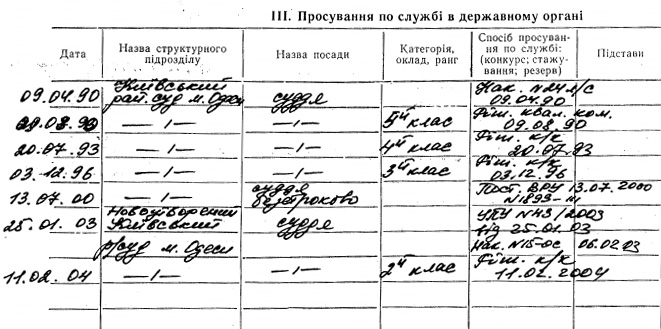 III. Просування по службі в державному органі
Дата
Назва структурного підрозділу
Назва посади
Категорія, оклад, ранг
Спосіб просування по службі: (конкурс; стажування; резерв)
Підстави
Київський
09.04.90 рай. суд м. Одеси суддя Нак. N24 л/с
09.04.90
09.08.90 —/— —/— 5й клас Ріш. квал. ком.
09.08.90
20.07.93 —/— —/— 4й клас Ріш. к/к
20.07.93
03.12.96 —/— —/— 3й клас Ріш. к/к
03.12.96
13.07.00 —/— суддя безстроково Пост. ВРУ 13.07.2000
N1899-III
Новоутворений
25.01.03 Київський суддя УПУ N43/2003
від 25.01.03
р/суд м. Одеси Нак. N15-ОС 06.02.03
11.02.04 —/— —/— 2й клас Ріш. к/к
11.02.2004